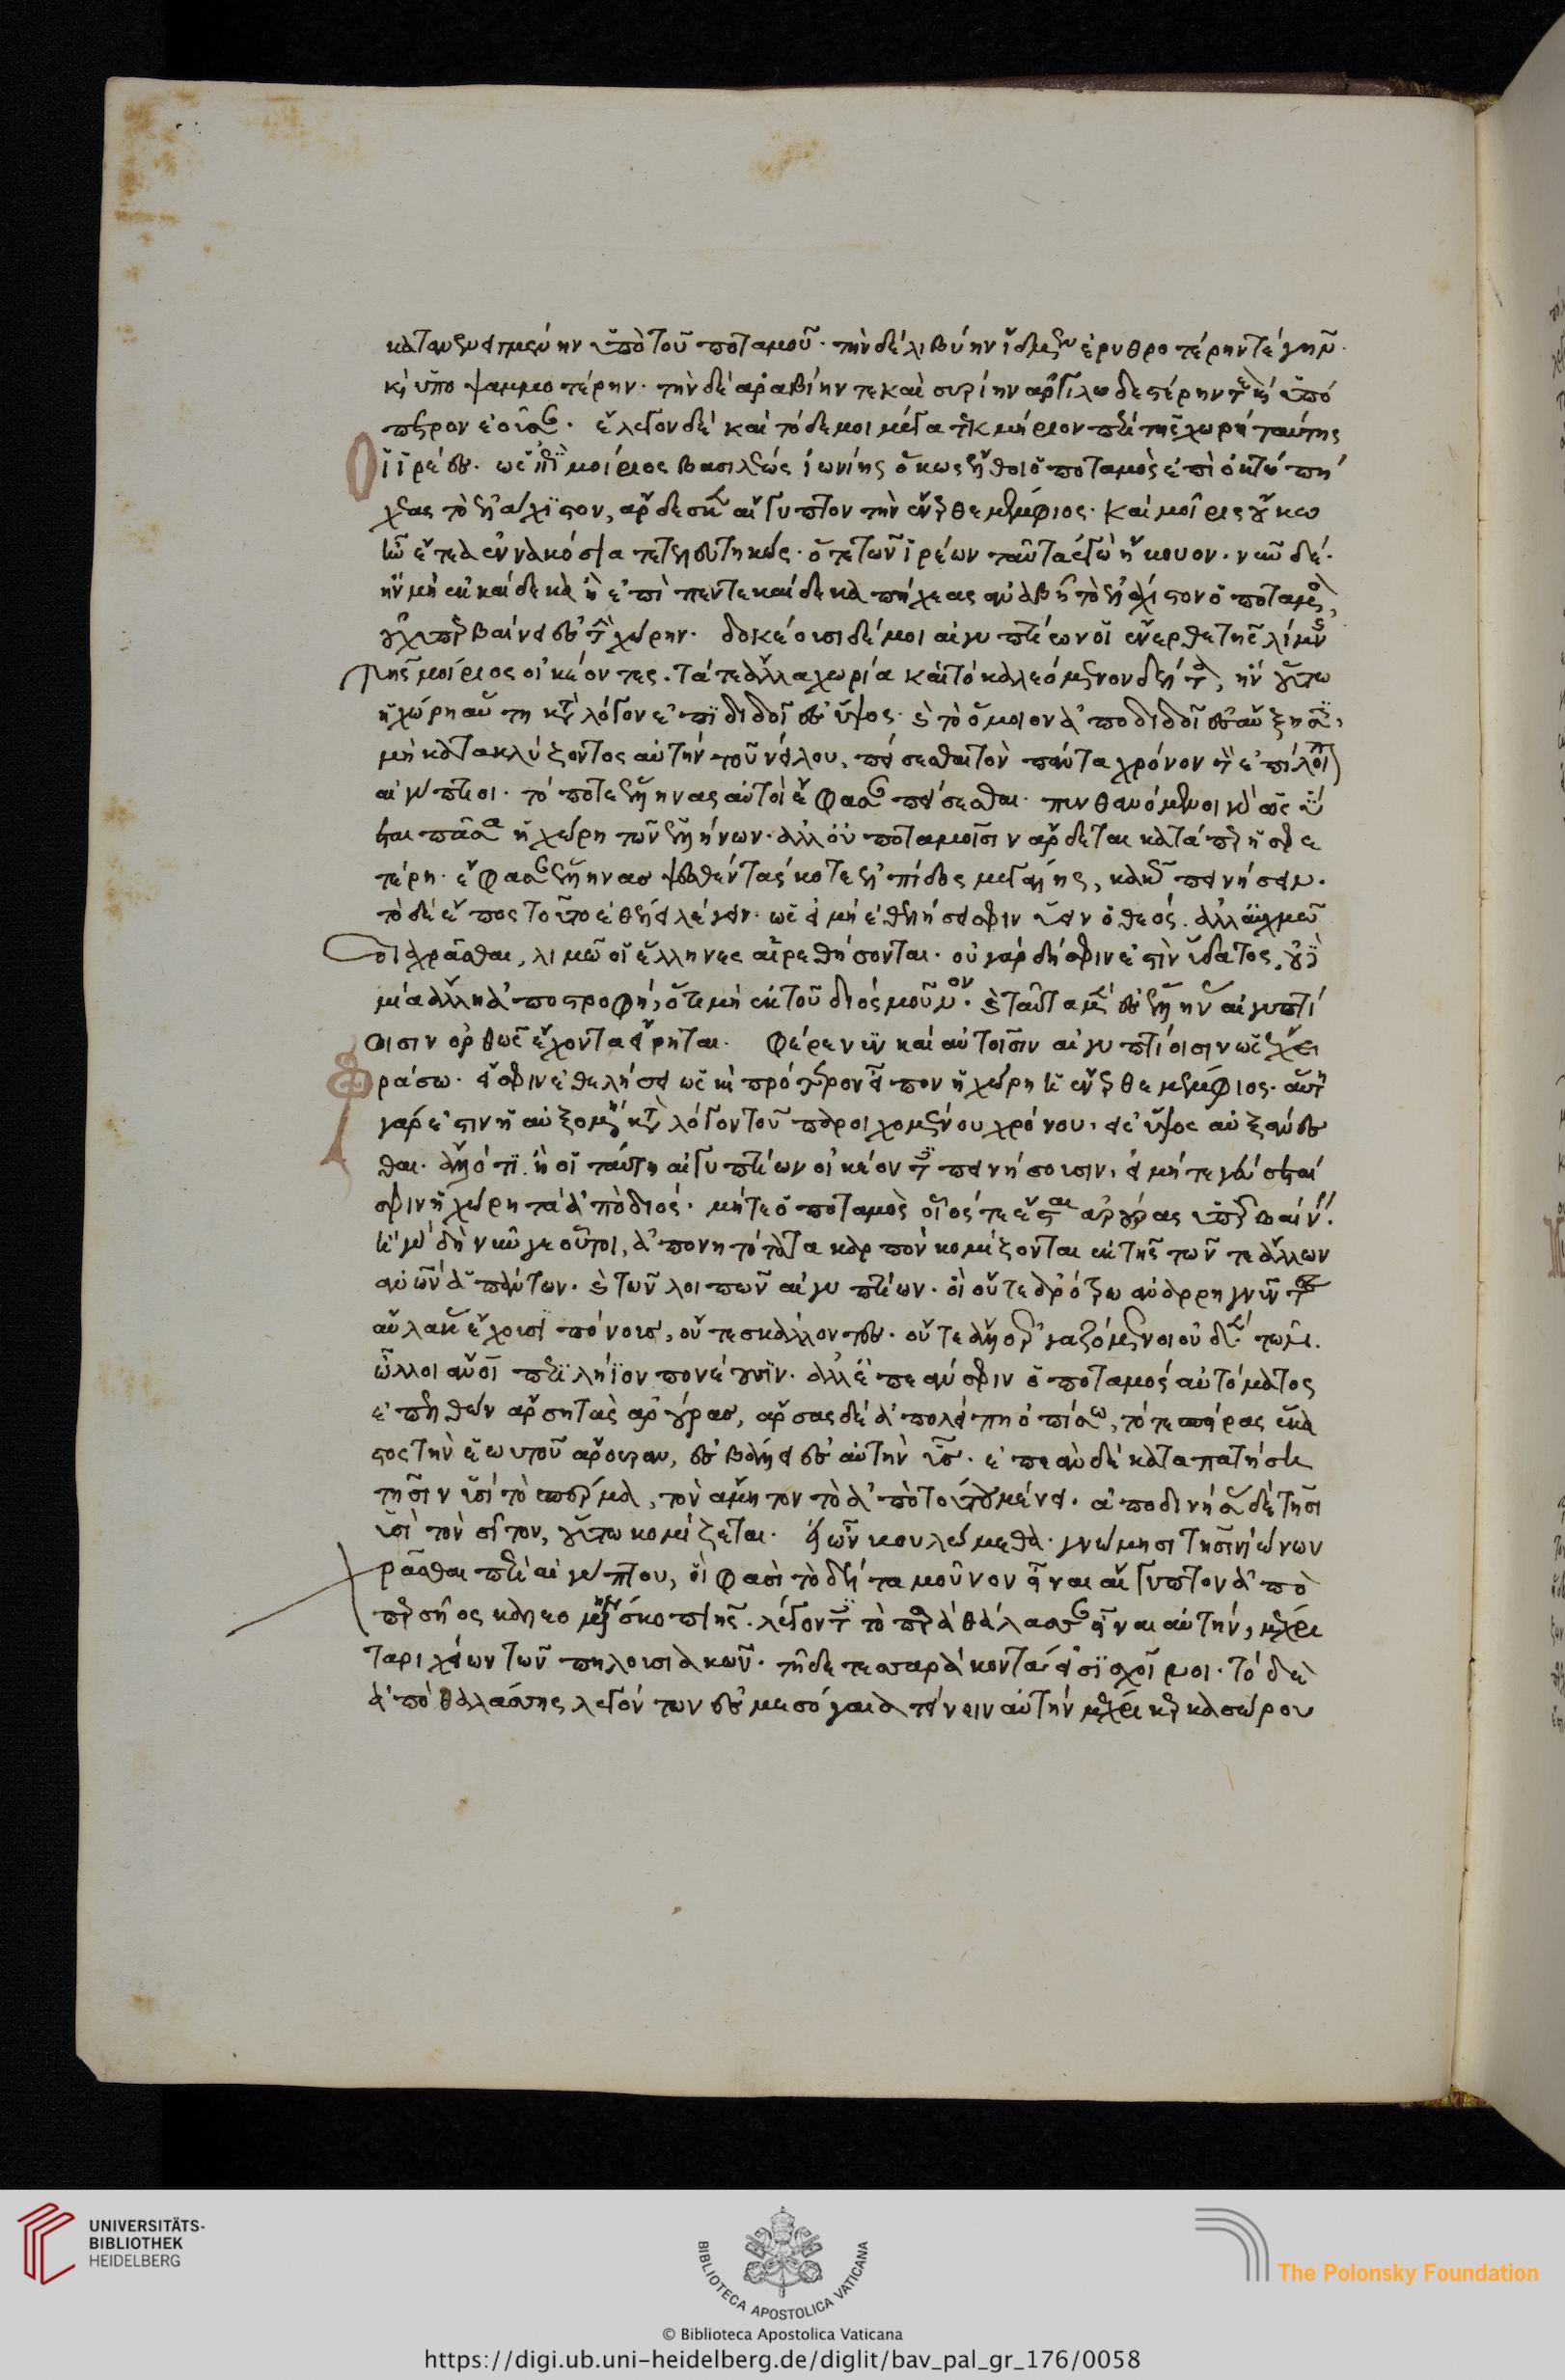 κατανενειγμένην ὑπὸ τοῦ ποταμοῦ· τὴν δὲ λιβύην ἴδμεν ἐρυθροτέρην τὲ γῆν·
καὶ ὑποψαμμοτέρην· τὴν δὲ ἀραβίην τε καὶ συρίην ἀργιλωδεστέρην τὲ καὶ ὑπό
πετρον ἐοῦσαν· ἔλεγον δὲ καὶ τόδε μοι μέγα τεκμήριον περὶ τῆς χώρης ταύτης
οἱ ἱρέες· ὡς ἐπὶ μοίριος βασιλέως ἰωνίης ὅκως ἔλθοι ὁ ποταμὸς ἐπὶ ὀκτὼ πή
χεας τὸ ἐλάχιστον, ἄρδεσκε αἴγυπτον τὴν ἔνερθε μέμφιος· καὶ μοῖρις οὔκω
ἦν ἔτεα ἐννακόσια τετελευτηκώς· ὅτε τῶν ἱρέων ταῦτα ἐγὼ ἤκουον· νῦν δὲ·
ἢν μὴ ἑκκαίδεκα ἢ ἐπὶ πεντεκαίδεκα πήχεας ἀναβῇ τὸ ἐλάχιστον ὁ ποταμὸς,
οὐχ ὑπερβαίνει ἐς τὴν χώρην· δοκέουσι δέ μοι αἰγυπτίων οἱ ἔνερθε τῆς λίμνης
τῆς μοίριος οἰκέοντες· τά τε ἄλλα χωρία καὶ τὸ καλεόμενον δέλτα, ἢν οὕτω
ἡ χώρη αὕτη κατὰ λόγον ἐπιδιδοῖ ἐς ὕψος· καὶ τὸ ὅμοιον ἀποδιδοῖ ἐς αὔξησιν,
μὴ κατακλύζοντος αὐτὴν τοῦ νείλου, πείσεσθαι τὸν πάντα χρόνον τὸν ἐπίλοιπον
αἰγύπτιοι· τό ποτε ἕλληνας αὐτοὶ ἔφασαν πείσεσθαι· πυνθανόμενοι γὰρ ὡς ὕ
εται πᾶσα ἡ χώρη τῶν ἑλλήνων· ἀλλ' οὐ ποταμοῖσιν ἄρδεται κατάπερ ἡ σφε
τέρη· ἔφασαν ἕλληνας ψευσθέντας κοτε ἐλπίδος μεγάλης, κακῶς πεινήσειν·
τὸ δὲ ἔπος τοῦτο ἐθέλει λέγειν· ὡς εἰ μὴ ἐθελήσει σφιν ὕειν ὁ θεός· ἀλλὰ αὐχμῶ
διαχρᾶσθαι, λιμῶ οἱ ἕλληνες αἱρεθήσονται· οὐ γὰρ δή σφιν ἐστὶν ὕδατος, οὐδε
μία ἄλλη ἀποστροφή, ὅτι μὴ ἐκ τοῦ διὸς μοῦνον· καὶ ταῦτα μὲν ἐς ἕλληνας αἰγυπτί
οισιν ὀρθῶς ἔχοντα εἴρηται· φέρε νῦν καὶ αὐτοῖσιν αἰγυπτίοισιν ὡς ἔχει
φράσω· εἴ σφιν ἐθελήσει ὡς καὶ πρότερον εἶπον ἡ χώρη ἡ ἔνερθε μέμφιος· αὕτη
γάρ ἐστιν ἡ αὐξομένη κατὰ λόγον τοῦ παροιχομένου χρόνου· ἐς ὕψος αὐξάνεσ
θαι· ἄλλό τι ἢ οἱ ταύτη αἰγυπτίων οἰκέοντες πεινήσουσιν, εἰ μήτε γε ὕσεταί
σφιν ἡ χώρη τὰ ἀπὸ διός· μήτε ὁ ποταμὸς οἷός τε ἔσται ἐς ἀρούρας ὑπερβαίνειν·
ἢ γὰρ δὴ νῦν γε οὗτοι, ἀπονητότατα καρπὸν κομίζονται ἐκ τῆς τῶν τε ἄλλων
ἀνθρώπων ἁπάντων· καὶ τῶν λοιπῶν αἰγυπτίων· οἳ οὔτε ἀρότρω ἀναρρηγνύντες
αὔλακας ἔχουσι πόνους, οὔτε σκάλλοντες· οὔτε ἄλλο ἐργαζόμενοι οὐδὲν τῶν
ὧλλοι ἄνθρωποι περὶ λήϊον πονέουσιν· ἀλλ' ἐπεάν σφιν ὁ ποταμὸς αὐτόματος
ἐπελθὼν ἄρση τὰς ἀρούρας, ἄρσας δὲ ἀπολείπη ὀπίσω, τότε σπείρας ἕκα
στος τὴν ἑωυτοῦ ἄρουραν, ἐσβάλλει ἐς αὐτὴν ὗς· ἐπεὰν δὲ καταπατήση
τῆσιν ὑσὶ τὸ σπέρμα, τὸν ἄμητον τὸ ἀπὸ τούτου μένει· ἀποδινήσας δὲ τῆσι
ὑσὶ τὸν σῖτον, οὕτω κομίζεται· εἰ ὦν βουλώμεθα γνώμησι τῆσιν ἰώνων
χρᾶσθαι περὶ αἰγύπτου, οἳ φασὶ τὸ δέλτα μοῦνον εἶναι αἴγυπτον ἀπὸ
περσῆος καλεομένης σκοπιῆς· λέγοντες τὸ παρὰ θάλασσαν εἶναι αὐτήν, μέχρι
ταριχείων τῶν πηλουσιακῶν· τῆ δὴ τεσσαράκοντα εἰσὶ σχοῖνοι· τὸ δὲ
ἀπὸ θαλάσσης λεγόντων ἐς μεσόγαια τείνειν αὐτὴν μέχρι κερκασώρου
UNIVERSITÄTS-
BIBLIOTHEK
HEIDELBERG
BIBLIOTECA APOSTOLICA VATICANA
The Polonsky Foundation
© Biblioteca Apostolica Vaticana
https://digi.ub.uni-heidelberg.de/diglit/bav_pal_gr_176/0058